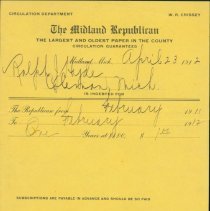 CIRCULATION DEPARTMENT W. R. CHISSEY
The Midland Republican
THE LARGEST AND OLDEST PAPER IN THE COUNTY
CIRCULATION GUARANTEED
Midland, Mich. April 23 1912
Ralph
Mich
IS INDEBTED FOR
The Republican from February 1911
To February 1912
One Years at $1.00, $ 1.00
SUBSCRIPTIONS ARE PAYABLE IN ADVANCE AND SHOULD BE SO PAID